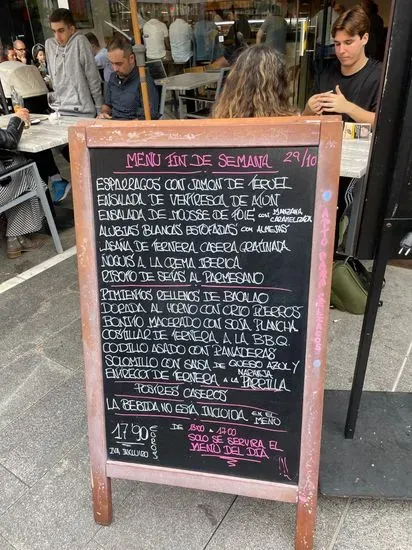 MENU FIN DE SEMANA 29/10
ESPARRAGOS CON JAMON DE TERUEL
ENSALADA DE VENTRESCA DE ATUN
ENSALADA DE MOUSSE DE FOIE CON MANZANA CARAMELIZADA
ALUBIAS BLANCAS ESTOFADAS CON ALMEJAS
LASAÑA DE TERNERA CASERA GRATINADA
ÑOQUIS A LA CREMA IBERICA
RISOTO DE SETAS AL PARMESANO
PIMIENTOS RELLENOS DE BACALAO
DORADA AL HORNO CON CRIO PUERROS
BONITO MACERADO CON SOJA PLANCHA
COSTILLAR DE TERNERA A LA B.B.Q.
CODILLO ASADO CON PANADERAS
SOLOMILLO CON SALSA DE QUESO AZUL Y NARANJA
ENTRECOT DE TERNERA A LA PARRILLA
POSTRES CASEROS
LA BEBIDA NO ESTA INCLUIDA EN EL MENÚ
17'90 EUROS
IVA INCLUIDO
DE 13:00 A 17:00
SOLO SE SERVIRA EL
MENU DEL DIA
!!!